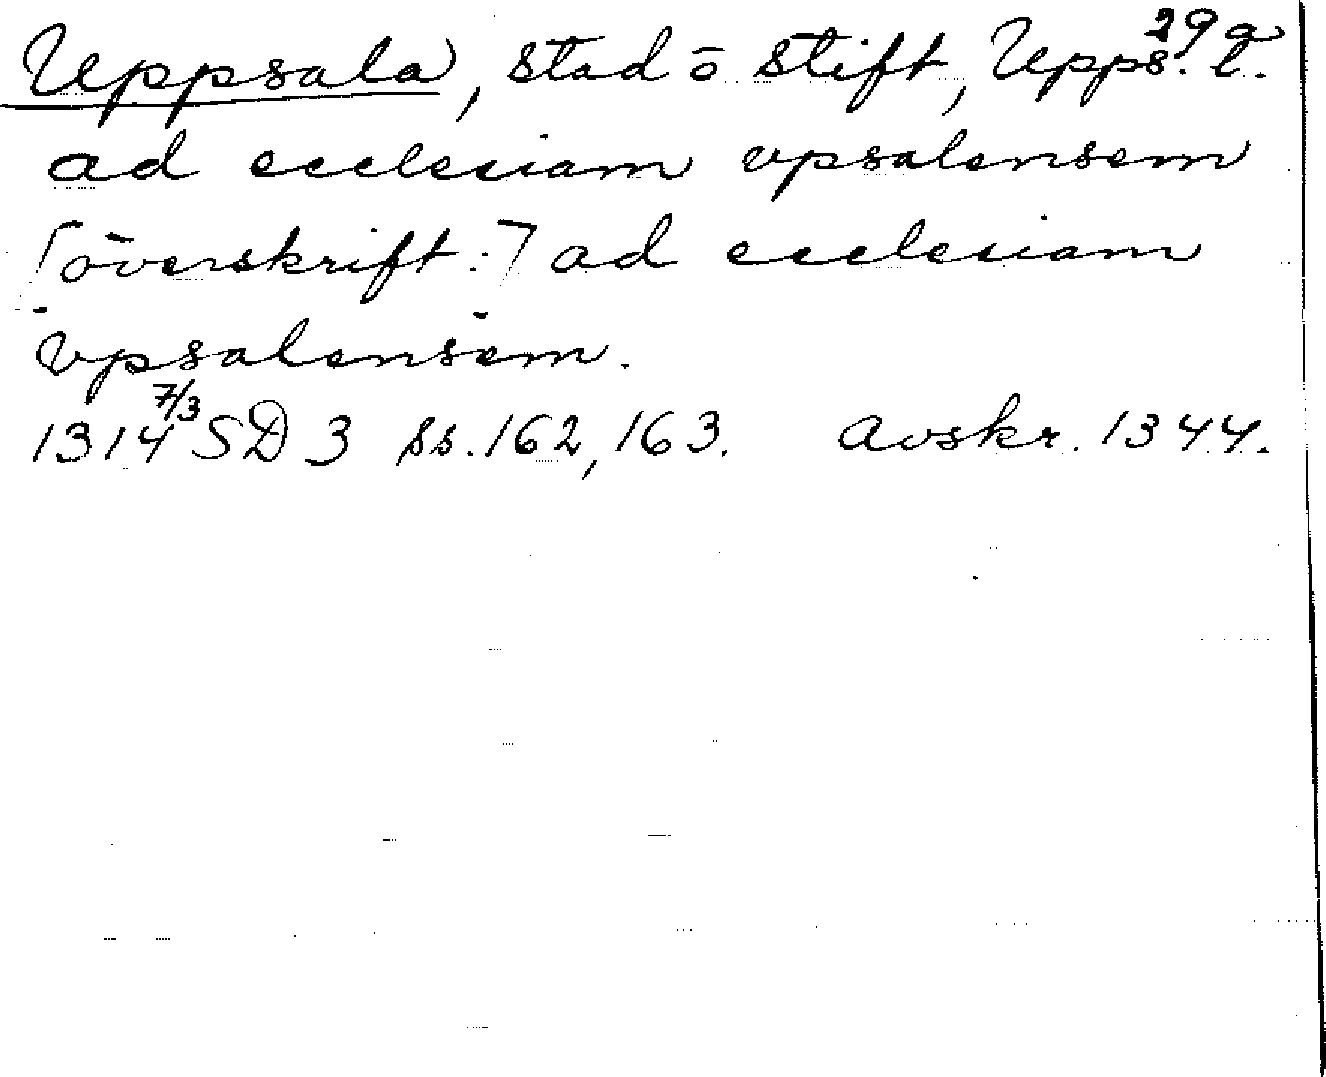 29 a
Uppsala, stad o stift, Upps. l.
ad ecclesiam vpsalensem
[överskrift:] ad ecclesiam
vpsalensem.
1314 7/3 SD 3 ss. 162, 163. Avskr. 1344.